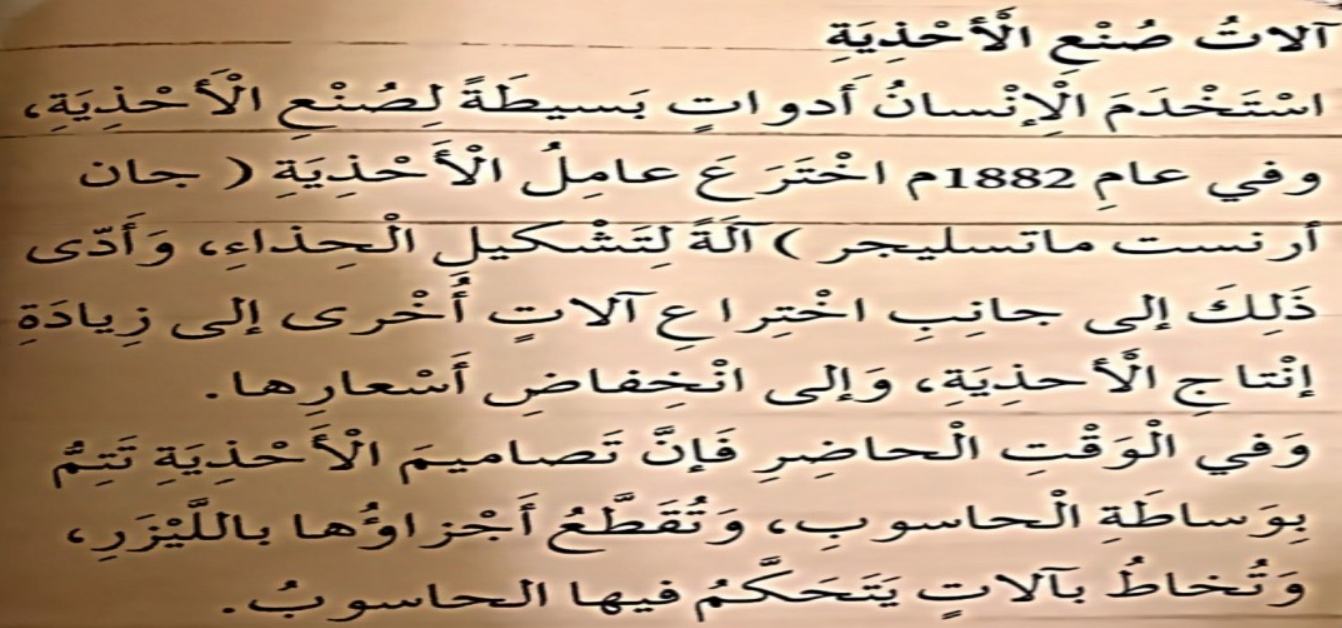 آلاتُ صُنْعِ الْأَحْذِيَةِ
اسْتَخْدَمَ الْإِنْسانُ أَدواتٍ بَسيطَةً لِصُنْعِ الْأَحْذِيَةِ،
وفي عامِ 1882م اخْتَرَعَ عامِلُ الْأَحْذِيَةِ ( جان
أرنست ماتسليجر ) آلَةً لِتَشْكيلِ الْحِذاءِ، وَأَدّى
ذَلِكَ إلى جانِبِ اخْتِراعِ آلاتٍ أُخْرى إلى زِيادَةِ
إنْتاجِ الْأَحذِيَةِ، وَإلى انْخِفاضِ أَسْعارِها.
وَفي الْوَقْتِ الْحاضِرِ فَإنَّ تَصاميمَ الْأَحْذِيَةِ تَتِمُّ
بِوَساطَةِ الْحاسوبِ، وَتُقَطَّعُ أَجْزاؤُها باللَّيْزَرِ،
وَتُخاطُ بآلاتٍ يَتَحَكَّمُ فيها الحاسوبُ.